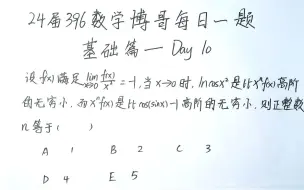 24届396数学博哥每日一题
基础篇 — Day 10
设f(x)满足lim x→0 f(x)/x² = -1,当x→0时,lncosx²是比xⁿf(x)高阶
的无穷小,而xⁿf(x)是比cos(sinx)-1高阶的无穷小,则正整数
n等于( )
A 1 B 2 C 3
D 4 E 5